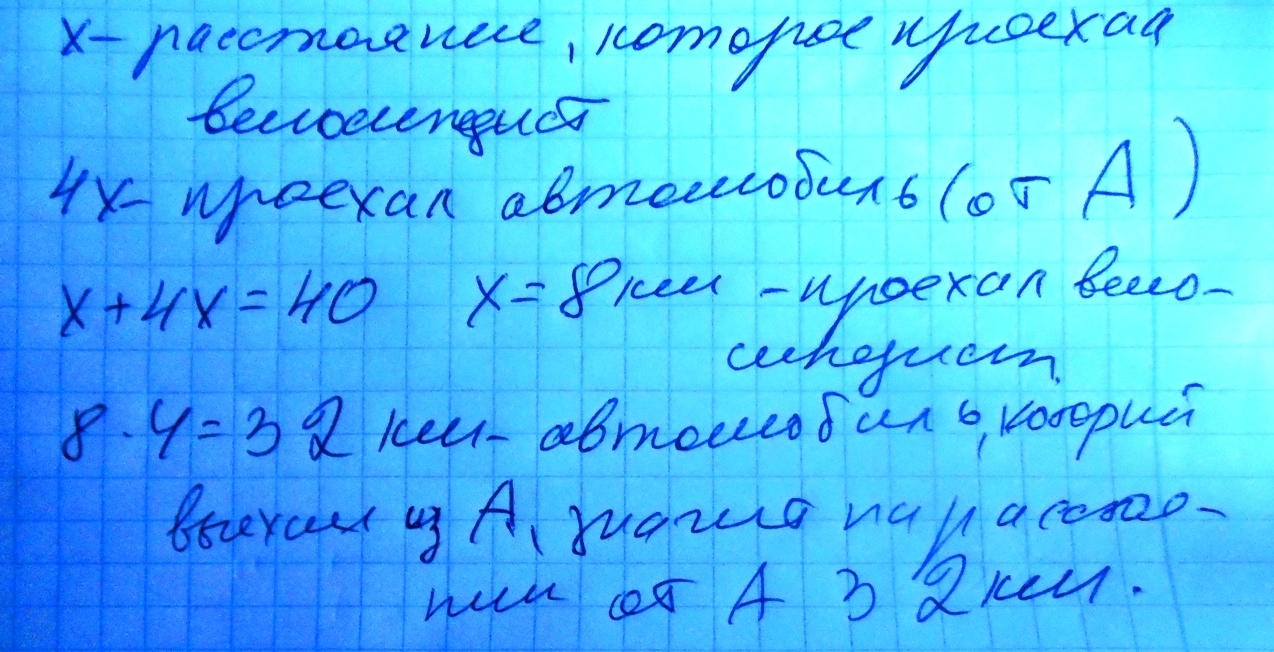 x – расстояние, которое проехал
велосипедист
4x – проехал автомобиль (от А)
x + 4x = 40 x = 8 км – проехал вело-
сипедист
8 · 4 = 32 км – автомобиль, который
выехал из А, значит на расстоя-
нии от А 32 км.